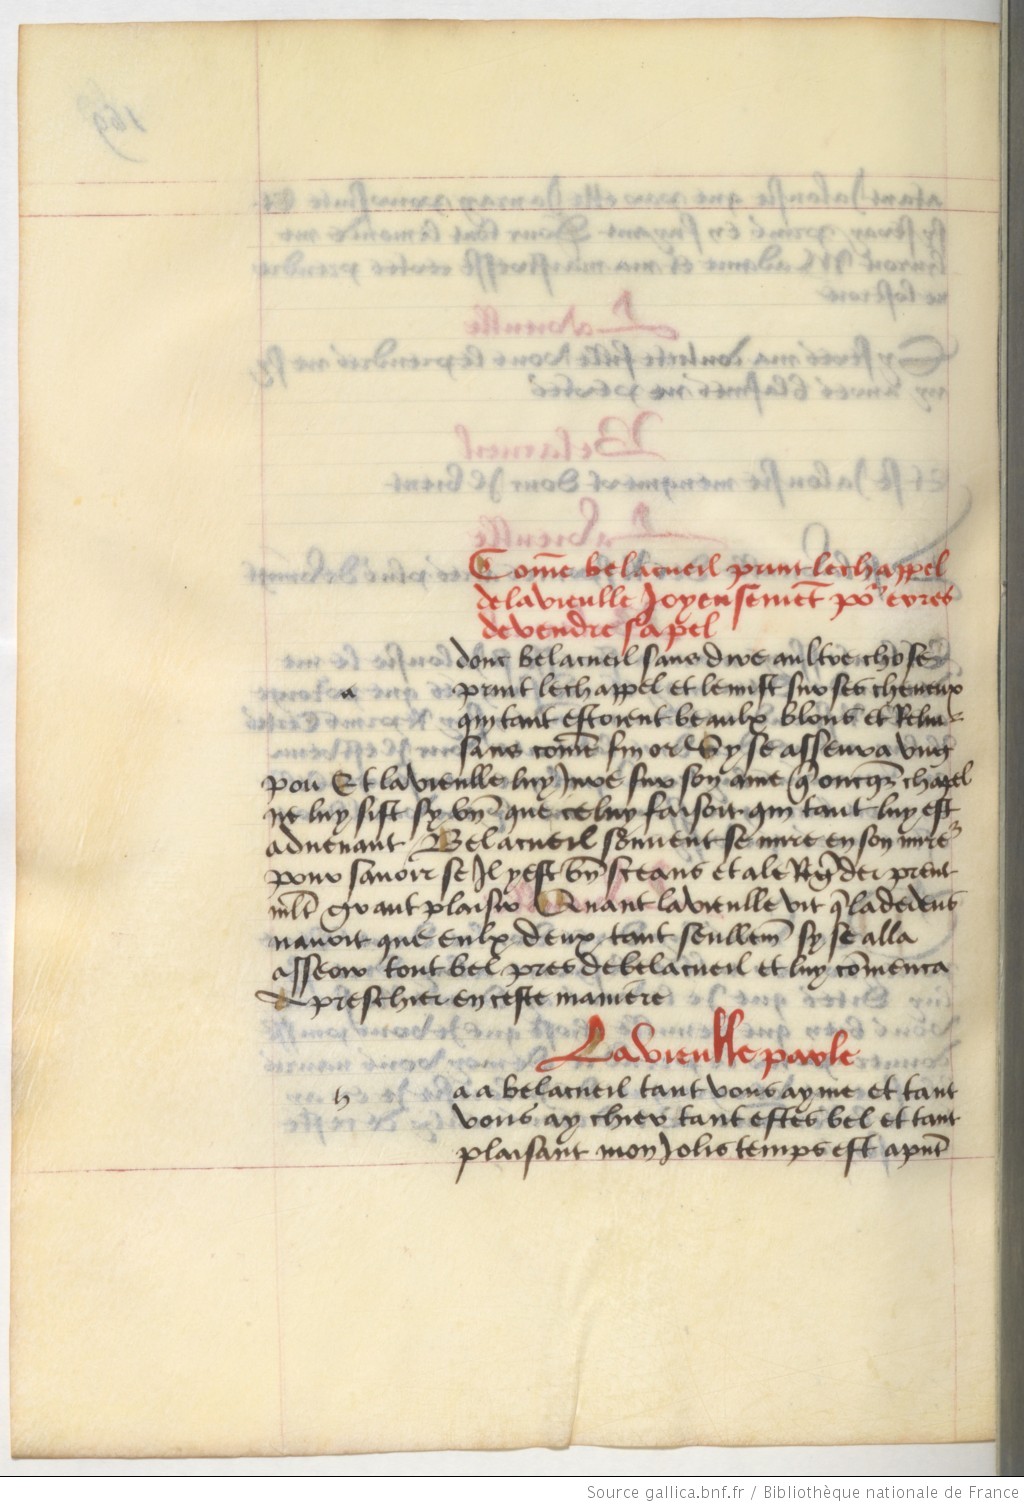 Com̄e belacueil print le chappel
de la vieulle Joyeusemēt po᷑ eures
de vendre sapel
donc belacueil sans dire aultre chose
a
print le chappel et le mist sur ses cheueux
qui tant estoient beaulx blons et Relui-
sans com̄e fin or Sy se asseura vng
pou Et la vieulle luy Jure sur son ame q̄ oncq̄s chapel
ne luy sist sy bn̄ que celuy faisoit qui tant luy est
aduenant Belacueil souuent se mire en son mire᷑
pour sauoir se Il y est bn̄ sceans et a le Reḡder prent
mlt̄ grant plaisir Quant la vieulle vit q̄ la dedens
nauoit que eulx deux tant seullem̄ sy se alla
asseoir tout bel pres de belacueil et luy com̄enca
a preschier en ceste maniere
La vieulle parle
h
a a belacueil tant vous ayme et tant
vous ay chier tant estes bel et tant
plaisant mon Jolis temps est
Source gallica.bnf.fr / Bibliothèque nationale de France